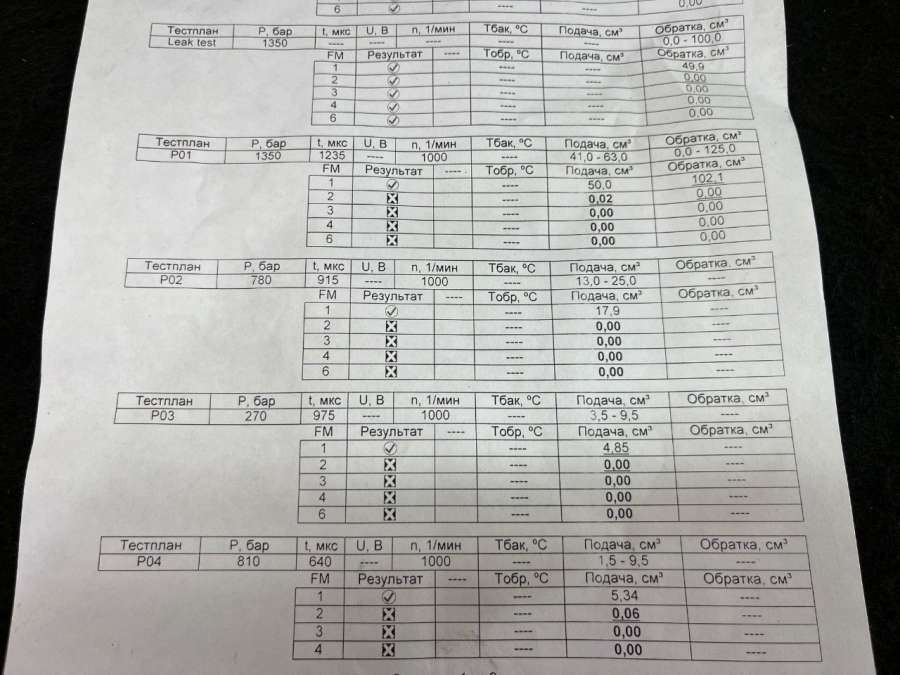 6 0,00
Тестплан Р, бар t, мкс U, В n, 1/мин Тбак, ºС Подача, см³ Обратка, см³
Leak test 1350 ---- ---- ---- ---- ---- 0,0 - 100,0
FM Результат ---- Тобр, ºС Подача, см³ Обратка, см³
1 ---- ---- 49,9
2 ---- ---- 0,00
3 ---- ---- 0,00
4 ---- ---- 0,00
6 ---- ---- 0,00
Тестплан Р, бар t, мкс U, В n, 1/мин Тбак, ºС Подача, см³ Обратка, см³
P01 1350 1235 ---- 1000 ---- 41,0 - 63,0 0,0 - 125,0
FM Результат ---- Тобр, ºС Подача, см³ Обратка, см³
1 ---- 50,0 102,1
2 ---- 0,02 0,00
3 ---- 0,00 0,00
4 ---- 0,00 0,00
6 ---- 0,00 0,00
Тестплан Р, бар t, мкс U, В n, 1/мин Тбак, ºС Подача, см³ Обратка, см³
P02 780 915 ---- 1000 ---- 13,0 - 25,0 ----
FM Результат ---- Тобр, ºС Подача, см³ Обратка, см³
1 ---- 17,9 ----
2 ---- 0,00 ----
3 ---- 0,00 ----
4 ---- 0,00 ----
6 ---- 0,00 ----
Тестплан Р, бар t, мкс U, В n, 1/мин Тбак, ºС Подача, см³ Обратка, см³
P03 270 975 ---- 1000 ---- 3,5 - 9,5 ----
FM Результат ---- Тобр, ºС Подача, см³ Обратка, см³
1 ---- 4,85 ----
2 ---- 0,00 ----
3 ---- 0,00 ----
4 ---- 0,00 ----
6 ---- 0,00 ----
Тестплан Р, бар t, мкс U, В n, 1/мин Тбак, ºС Подача, см³ Обратка, см³
P04 810 640 ---- 1000 ---- 1,5 - 9,5 ----
FM Результат ---- Тобр, ºС Подача, см³ Обратка, см³
1 ---- 5,34 ----
2 ---- 0,06 ----
3 ---- 0,00 ----
4 ---- 0,00 ----